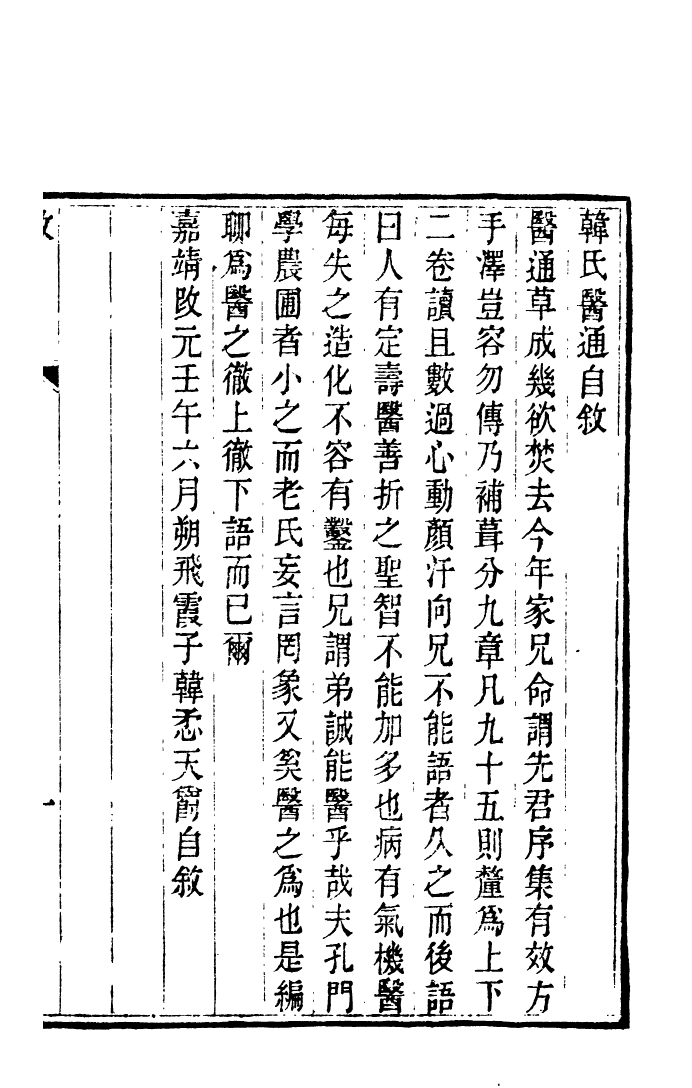 韓氏醫通自敘
醫通草成幾欲焚去今年家兄命謂先君序集有效方
手澤豈容勿傳乃補葺分九章凡九十五則釐爲上下
二卷讀且數過心動顏汗向兄不能語者久之而後語
曰人有定壽醫善折之聖智不能加多也病有氣機醫
每失之造化不容有鑿也兄謂弟誠能醫乎哉夫孔門
學農圃者小之而老氏妄言罔象又奚醫之爲也是編
聊爲醫之徹上徹下語而已爾
嘉靖改元壬午六月朔飛霞子韓悉天爵自敘
一